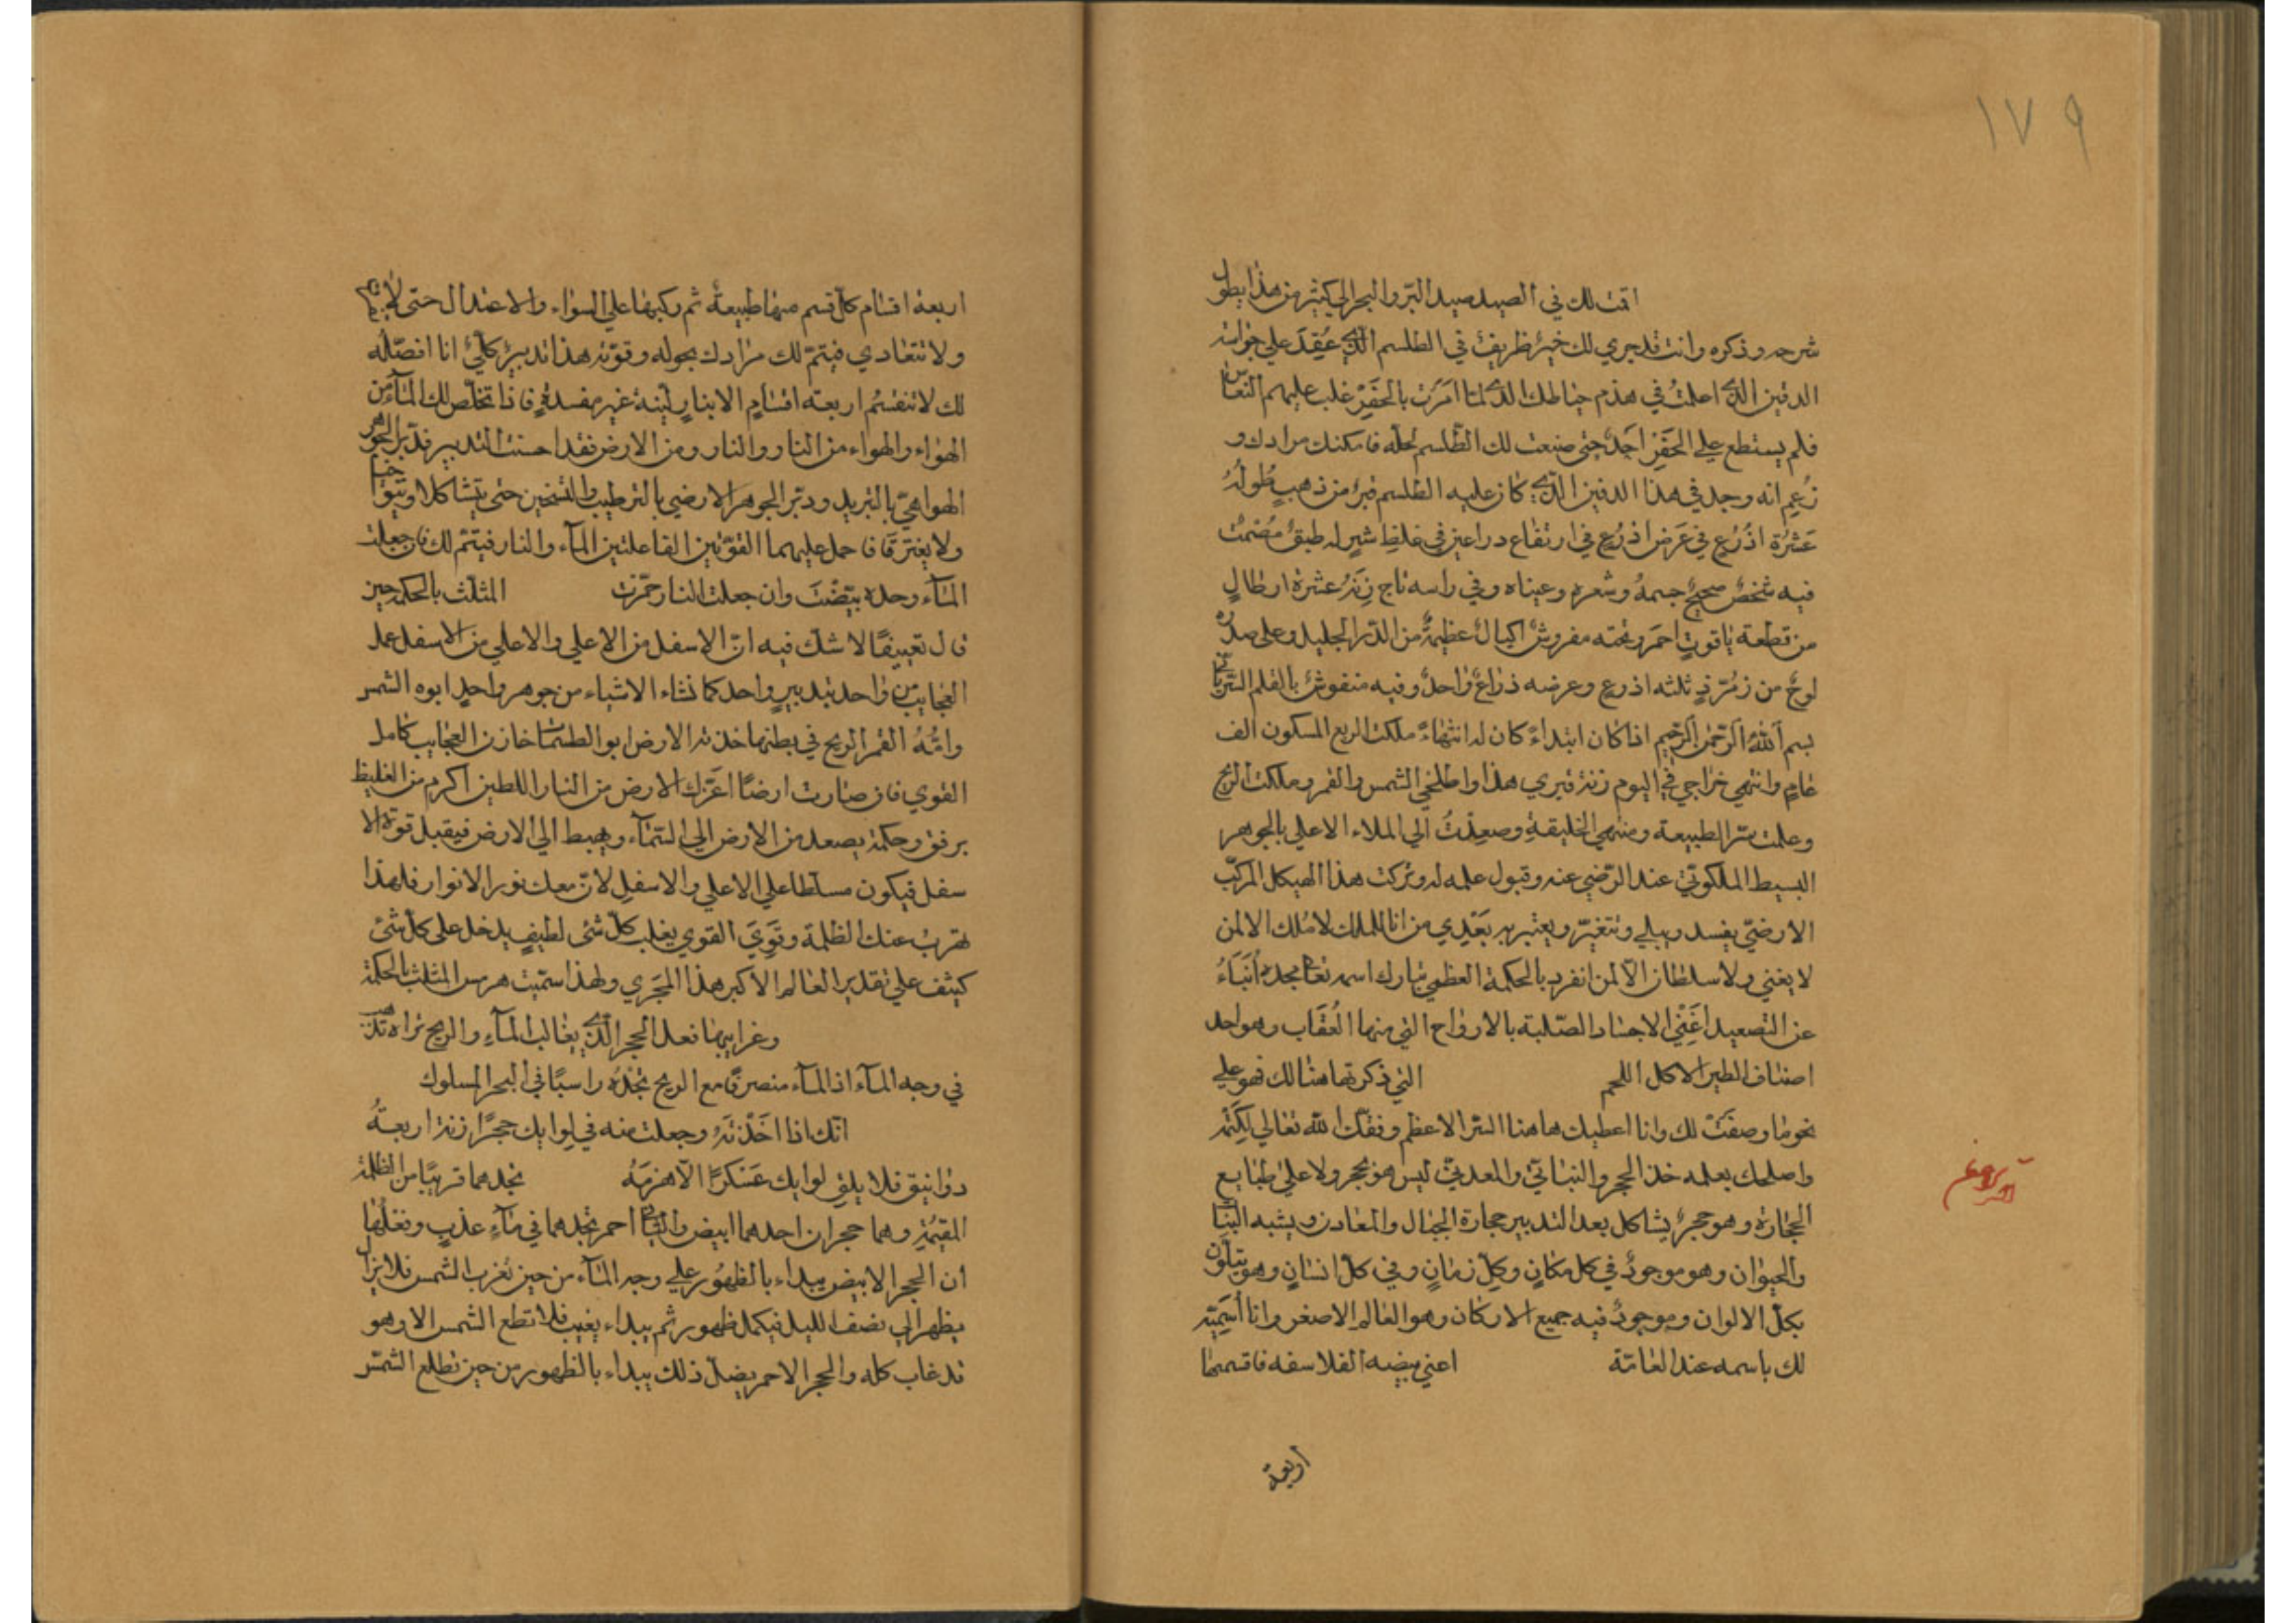 ١٧٩
اقمت لك في الصيد صيد البر والبحر الي كثير من هذا يطول
شرحه وذكره وانت قد جري لك خبرٌ ظريفٌ في الطلسم الذي عُقِدَ علي خزانة
الدفين الذي اعلمتُ في هذم حياطك الذي لما امَرَت بالحَفَرِ غلب عليهم النعاس
فلم يستطع علي الحَفَرِ احَدٌ حتى صنعت لك الطّلسم لحلّه فامكنك مرادك و
زُعِم انه وجد في هذا الدفين الذي كان عليه الطلسم قبرٌ من ذهبٍ طُولُهُ
عَشرُة اذُرعٍ في عَرَض اذرعٍ في ارتفاع دراعين في غلظِ شبرٍ له طبقٌ مُصْمَتٌ
فيه شخصٌ صحيحٌ جسمهُ وشعره وعيناه وفي راسه تاج زِنَتهُ عشرة ارطالٍ
من قطعة ياقوتٍ احمَر وتحته مفروشٌ اكيالٌ عظيمةٌ من الدّر الجليل وعلى صدره
لوحٌ من زمُرّذٍ ثلثه اذرعٍ وعرضه ذراعٌ واحدٌ وفيه منقوشٌ بالقلم السّرياني
بسم الله الرّحمن الرّحيم اذا كان ابتداءٌ كان له انتهاءٌ ملكت الربع المسكون الف
عامٍ وانتهي خراجي في اليوم زنة قبري هذا واطلعني الشمس والقمر وملكت الريح
وعلمت سّر الطبيعة ومنتهي الخليقةِ وصعِدْتُ الي الملاء الاعلي بالجوهر
البسيط الملكوتّي عند الرّضي عنه وقبول علمه له وتركت هذا الهيكل المركّب
الارضيّ يفسد ويبلي ويتغيّر ويعتبر به بَعْدِي من انا للملك لا مُلك الا لمن
لا يفني ولا سلطان الّا لمن انفرد بالحكمة العظمي تبارك اسمه تعالى مجده أَنبَاءُ
عن التصعيد اغَنِي الاجساد الصّلبة بالارواح التي منها العُقَاب وهو احد
اصناف الطير الاكل اللحم التي ذكرتها هنالك فهو علي
نحو ما وصفَتْ لك وانا اعطيك هاهنا السّر الاعظم وفقك الله تعالي لِكَتْمه
واصلحك بعلمه خذ الحجر والنباتيّ والمعدنيّ ليس هو بحجر ولا علي طبايع
الحجارة وهو حجرٌ يشاكل بعد التدبير حجارة الجبال والمعادن ويشبه النبات
والحيوان وهو موجودٌ في كل مكانٍ وكلّ زمانٍ وفي كلّ انسانٍ وهو يتلوّن
بكلّ الالوان وموجودٌ فيه جميع الاركان وهو العالم الاصغر وانا أسَمِيّه
لك باسمه عند العامّة اعني بيضه الفلاسفه فاقسمها
اربعة
اربعة اقسام كلّ قسم منها طبيعةٌ ثم ركبها علي السواء والاعتدال حتى
ولا تتعادي فيتمّ لك مرادك بحوله وقوّته هذا تدبيرٌ كلّيٌ انا افصّله
لك لا تنقسمُ اربعة اقسامٍ الا بنارٍ ليّنة غير مفسدةٍ فاذا تخلّص لك المآء من
الهواء والهواء من النار والنار ومن الارض فقد احسنت التدبير فدبّر الجوهر
الهواهيّ بالتبريد ودبّر الجوهر الارضي بالترطيب والتسخين حتى يتشاكلا ويتواخيا
ولا يفترقا فاحمل عليهما القوّتين الفاعلتين المآء والنار فيتمّ لك فان جعلت
المآء وحده بيّضْتَ وان جعلت النار حمّرت المثلّث بالحكمة حين
قال تعييفًا لا شك فيه انّ الاسفل من الاعلي والاعلي من الاسفل عمل
العجايب من واحد بتدبيرٍ واحد كما نشاء الاشياء من جوهرٍ واحدٍ ابوه الشمس
وامّهُ القمر الريح في بطنها غذته الارض ابو الطلسمات خازن العجايب كامل
القوي فان صارت ارضًا اعزّك الارض من النار اللطين اكرم من الغليظ
برفق وحكمة يصعد من الارض الي السّمآء ويهبط الي الارض فيقبل قوة الا
سفل فيكون مسلّطا علي الاعلي والاسفلِ لانّ معك نور الانوار فلهذا
تهربُ عنك الظلمة وقَوِيَ القوي يغلب كلّ شئى لطيفٍ يدخل على كل شئى
كيثف علي تقدير العالم الاكبر هذا المجَري ولهذا سمّيت هرمس المثلث بالحكمة
وغرايبها فعل الحجر الّذي يغالب المآء والريح تراه
في وجه المآء اذ المآء منصرفًا مع الريح تجْدُه راسبًا في البحر المسلوك
انّك اذا اخَذْتَهُ وجعلت منه في لوايك حجرًا زنة اربعةُ
دوانيق فلا يلقي لوايك عَسْكرًا الّا هزمَهُ تجدهما قريبًا من الظلمة
المقيْمةِ وهما حجران احدهما ابيض والثاني احمر تجدهما في مآءٍ عذبٍ وفعلُها
ان الحجر الابيض يبداء بالظهُور علي وجه المآء من حين تغرب الشمس فلا يزال
يظهر الي نصف الليل فيكمل ظهوره ثم يبداء يغيب فلا تطع الشمس الا وهو
قد غاب كله والحجر الاحمر يضلّ ذلك يبداء بالظهور من حين تطلع الشمس